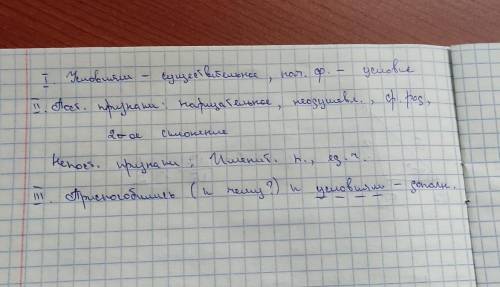 I Условиям – существительное, нач. ф. – условие
II. Пост. признаки: нарицательное, неодушевл., ср. род,
2-ое склонение
Непост. признаки: Именит. п., ед. ч.
III. Приспособились (к чему?) к условиям – дополн.